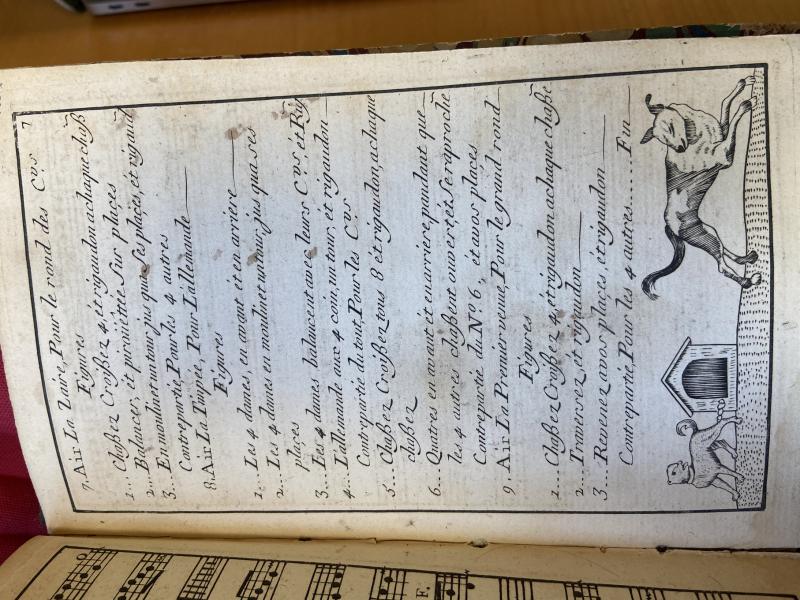 7
7. Air La Laire, Pour le rond des C.vs
Figures
1... Chaßez Croißez 4, et rigaudon a chaque chaß
2... Balancez, et pirouettée Sur plaçes
3... En moulinet un tour jus qu'a Ses plaçes, et rigaud
Contrepartie, Pour les 4 autres
8. Air La Pimpie, Pour L'allemande
Figures
1... Les 4 dames, en avant et en arriere
2... Les 4 dames en moulinet un tour, jus qua ses
places
3... Les 4 dames balancent avec leurs C.vs et Rig
4... L'allemande aux 4 coin un tour, et rigaudon
Contrepartie du tout, Pour les C.vs
5... Chaßez Croißez tous 8 et rigaudon, a chaque
chaßez
6... Quatres en avant et en arriere pandant que
les 4 autres chaßent ouvert, et Se raproche
Contrepartie du N.o 6, et a vos plaçes
9. Air La Premiere venue, Pour le grand rond
Figures
1... Chaßez Croißez 4, et rigaudon a chaque chaße
2... Traversez, et rigaudon
3... Revenez a vos plaçes, et rigaudon
Contrepartie, Pour les 4 autres...... Fin
F.